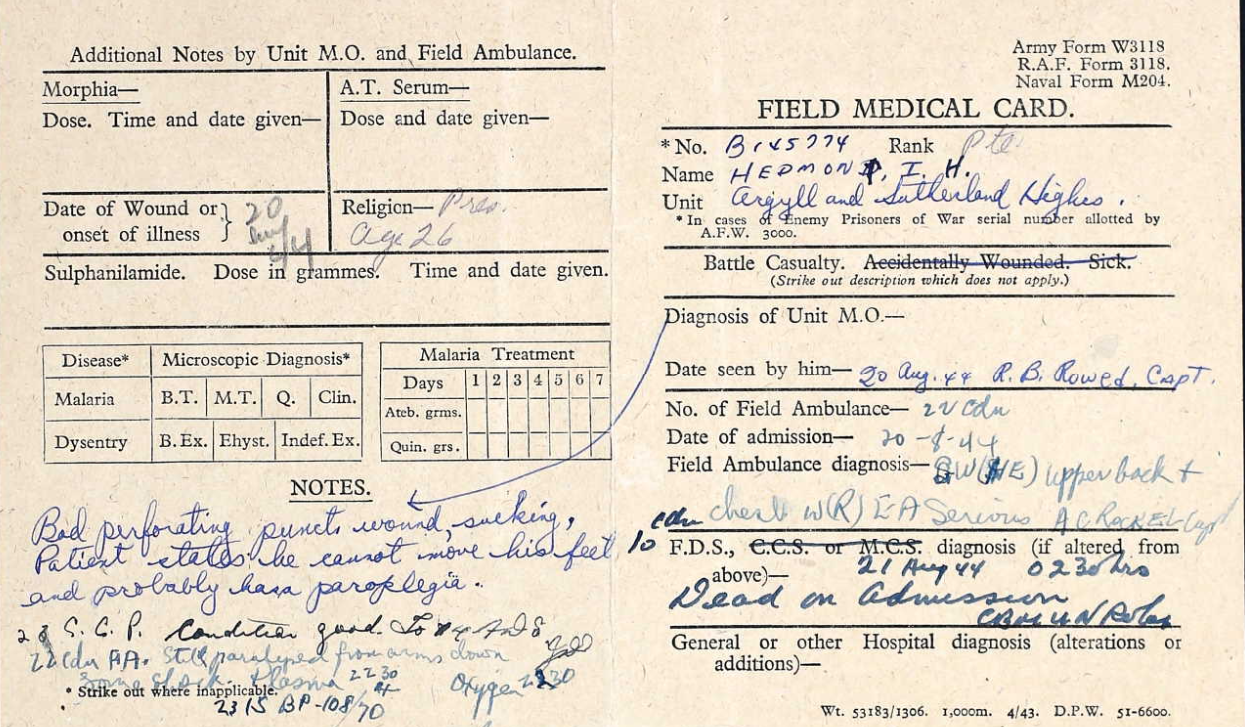 Additional Notes by Unit M.O. and Field Ambulance.
Morphia—
Dose. Time and date given—
A.T. Serum—
Dose and date given—
Date of Wound or
onset of illness
20
Religion— Pres.
Age 26
Sulphanilamide. Dose in grammes. Time and date given.
Disease* Microscopic Diagnosis*
Malaria B.T. M.T. Q. Clin.
Dysentry B. Ex. Ehyst. Indef. Ex.
Malaria Treatment
Days 1 2 3 4 5 6 7
Ateb. grms.
Quin. grs.
NOTES.
Bad perforating wound, sucking,
Patient states he cannot move his feet
and probably has a paraplegia.
Condition good. To
22 Cdn FA. Still paralysed from arms down
Some Shock. Plasma 2230 Oxygen 2230
* Strike out where inapplicable.
2315 BP-108/70
Army Form W3118
R.A.F. Form 3118.
Naval Form M204.
FIELD MEDICAL CARD.
* No. B145774 Rank Pte
Name I. H.
Unit Argyll and Sutherland Highrs.
* In cases of Enemy Prisoners of War serial number allotted by
A.F.W. 3000.
Battle Casualty. Accidentally Wounded. Sick.
(Strike out description which does not apply.)
Diagnosis of Unit M.O.—
Date seen by him— 20 Aug. 44 R. B. Rowed, CAPT.
No. of Field Ambulance— 22 Cdn
Date of admission— 20-8-44
Field Ambulance diagnosis— (HE) upper back +
chest W(R) EA Serious Capt
10 Cdn F.D.S., C.C.S. or M.C.S. diagnosis (if altered from
above)— 21 Aug 44 0230 hrs
Dead on Admission
General or other Hospital diagnosis (alterations or
additions)—
Wt. 53183/1306. 1,000m. 4/43. D.P.W. 51-6600.